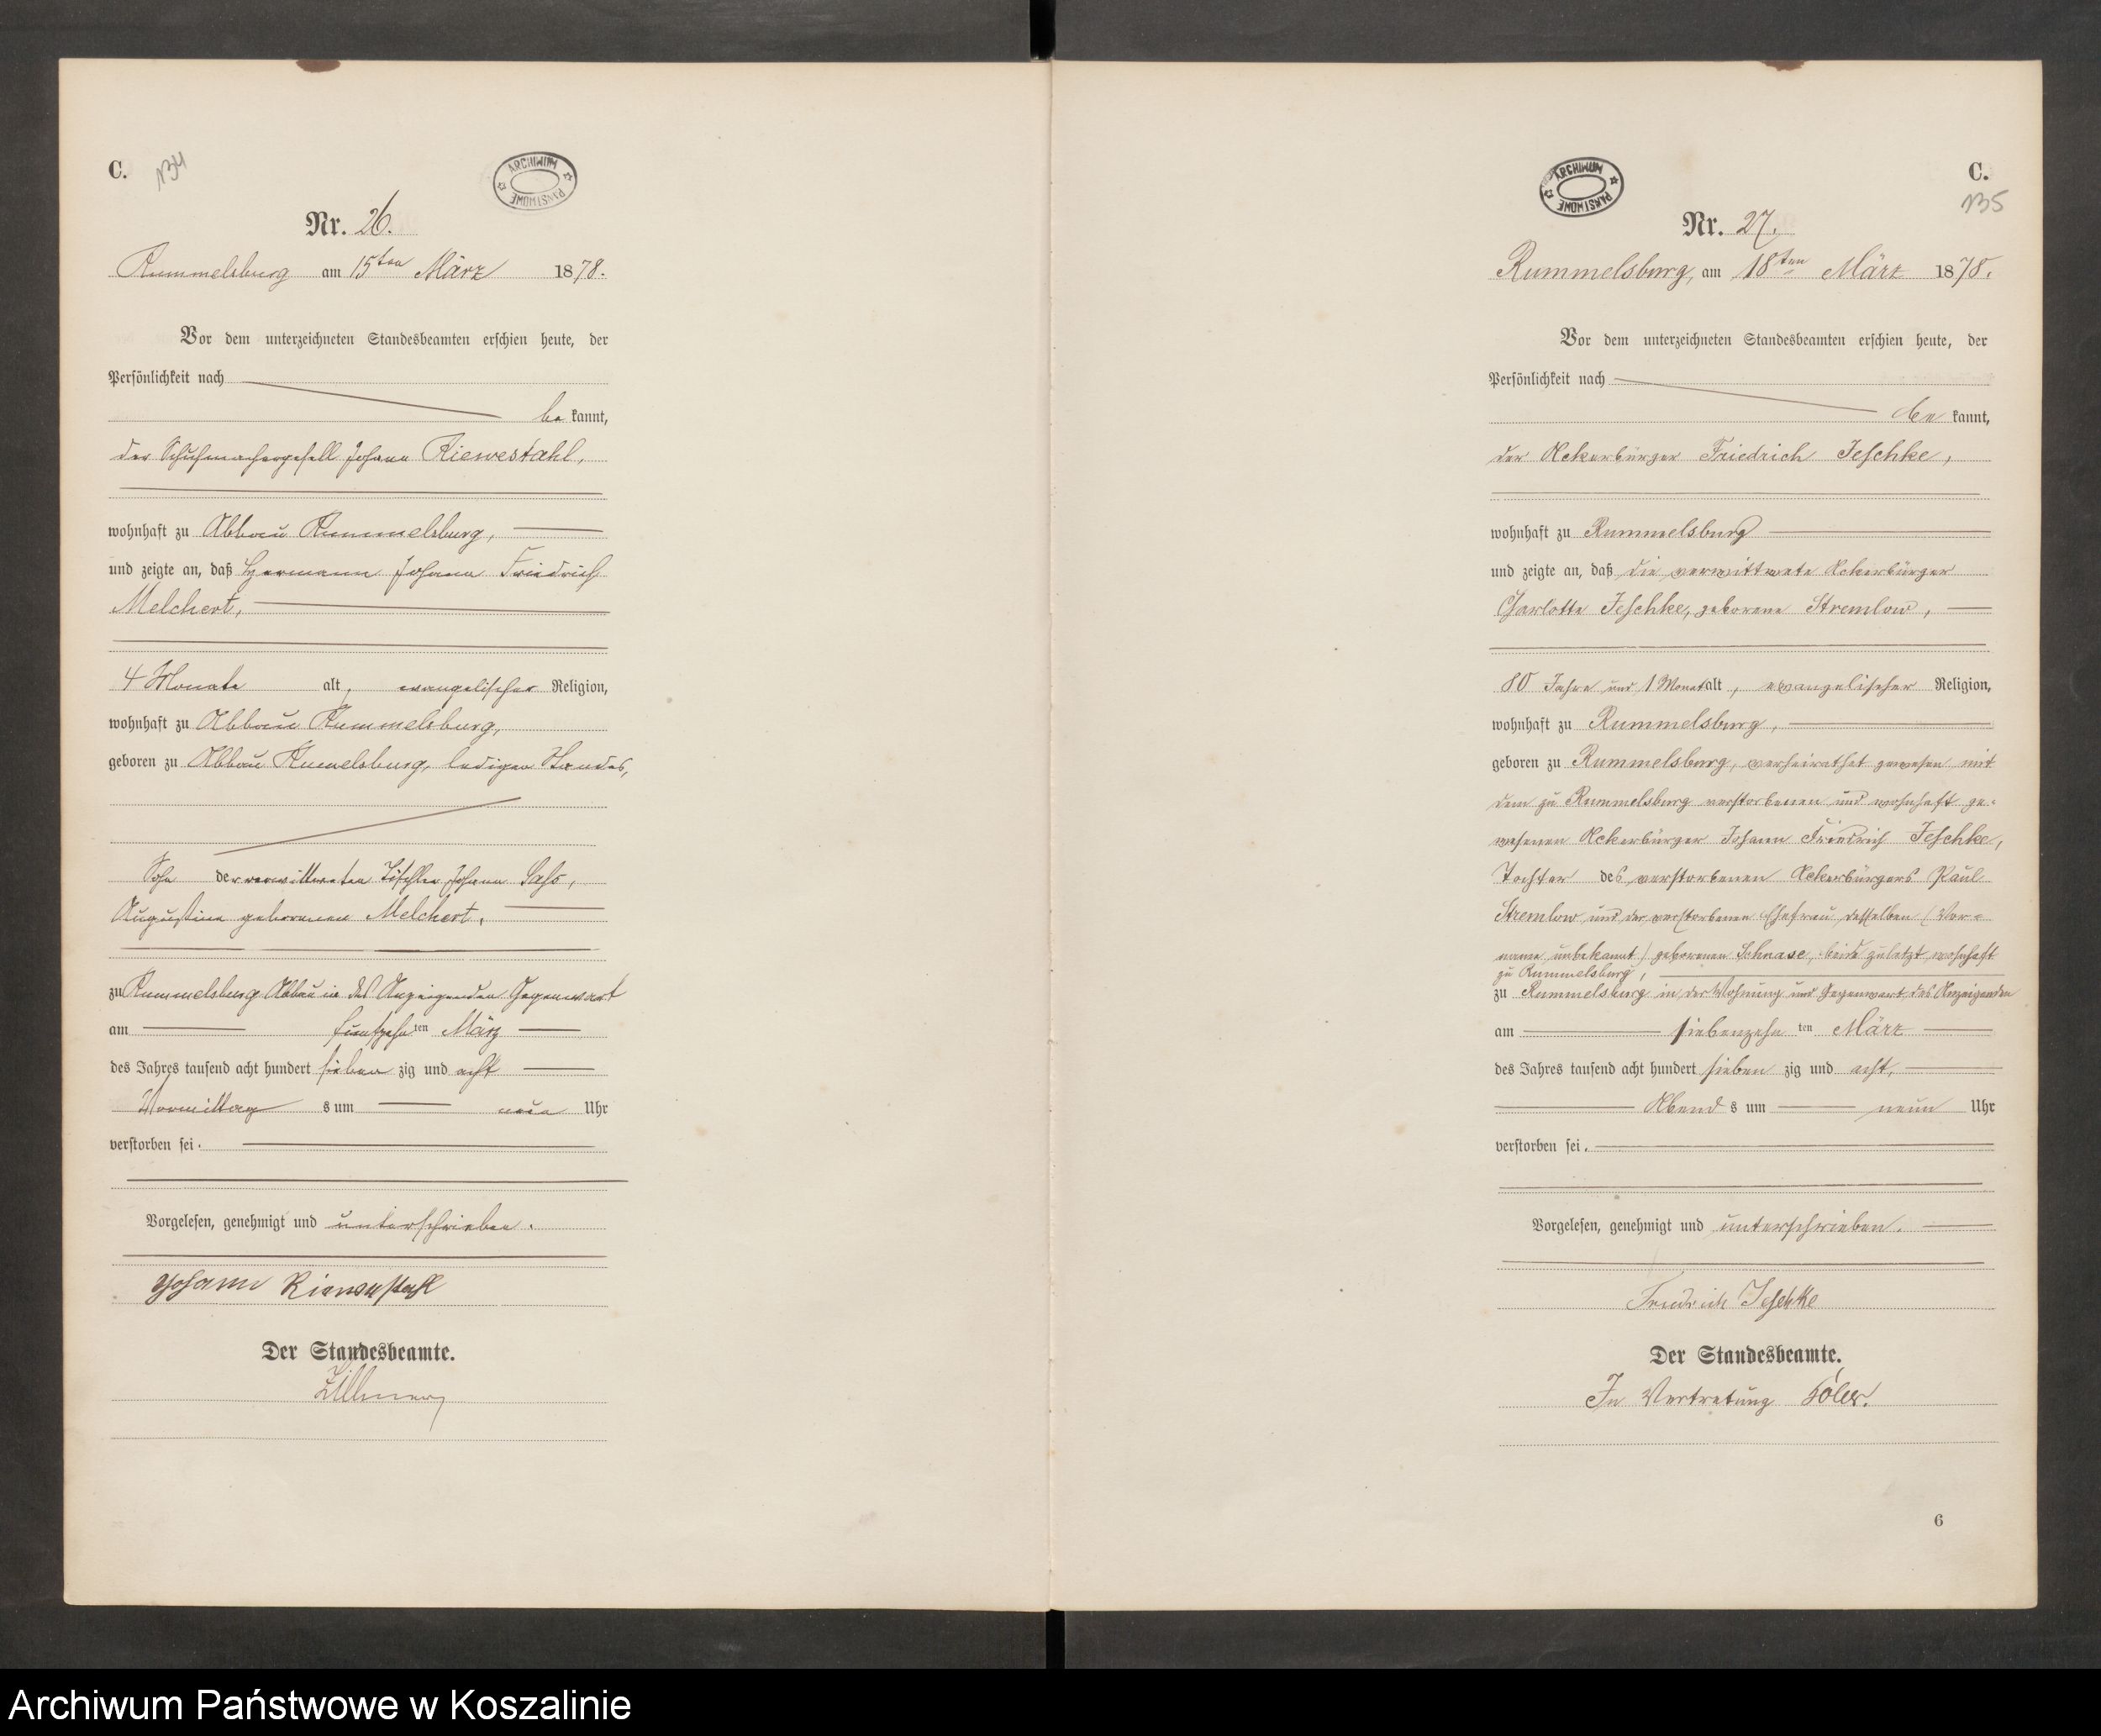 C.
134
ARCHIWUM PAŃSTWOWE
Nr. 26.
Rummelsburg am 15ten März 1878.
Vor dem unterzeichneten Standesbeamten erschien heute, der
Persönlichkeit nach
be kannt,
der Schuhmachergesell Johann Riewestahl,
wohnhaft zu Abbau Rummelsburg,
und zeigte an, daß Hermann Johann Friedrich
Melchert,
4 Monate alt, evangelischer Religion,
wohnhaft zu Abbau Rummelsburg,
geboren zu Abbau Rummelsburg, ledigen Standes,
Sohn der verwittweten Tischler Johann Sass,
Augustine geborenen Melchert.
zu Rummelsburg Abbau in des Anzeigenden Gegenwart
am funfzehn ten März
des Jahres tausend acht hundert sieben zig und acht
Vormittag s um neun Uhr
verstorben sei.
Vorgelesen, genehmigt und unterschrieben.
Johann Riewestahl
Der Standesbeamte.
Zillmer
C.
135
ARCHIWUM PAŃSTWOWE
Nr. 27.
Rummelsburg, am 18ten März 1878.
Vor dem unterzeichneten Standesbeamten erschien heute, der
Persönlichkeit nach
be kannt,
der Ackerbürger Friedrich Jeschke,
wohnhaft zu Rummelsburg
und zeigte an, daß die verwittwete Ackerbürger
Charlotte Jeschke, geborene Stremlow,
80 Jahre und 1 Monat alt, evangelischer Religion,
wohnhaft zu Rummelsburg,
geboren zu Rummelsburg, verheirathet gewesen mit
dem zu Rummelsburg verstorbenen und wohnhaft ge-
wesenen Ackerbürger Johann Friedrich Jeschke,
Tochter des verstorbenen Ackerbürgers Paul
Stremlow und der verstorbenen Ehefrau desselben (Vor-
name unbekannt) geborenen Schnase, beide zuletzt wohnhaft
zu Rummelsburg,
zu Rummelsburg in der Wohnung und Gegenwart des Anzeigenden
am siebenzehn ten März
des Jahres tausend acht hundert sieben zig und acht,
Abend s um neun Uhr
verstorben sei.
Vorgelesen, genehmigt und unterschrieben.
Friedrich Jeschke
Der Standesbeamte.
In Vertretung
6
Archiwum Państwowe w Koszalinie